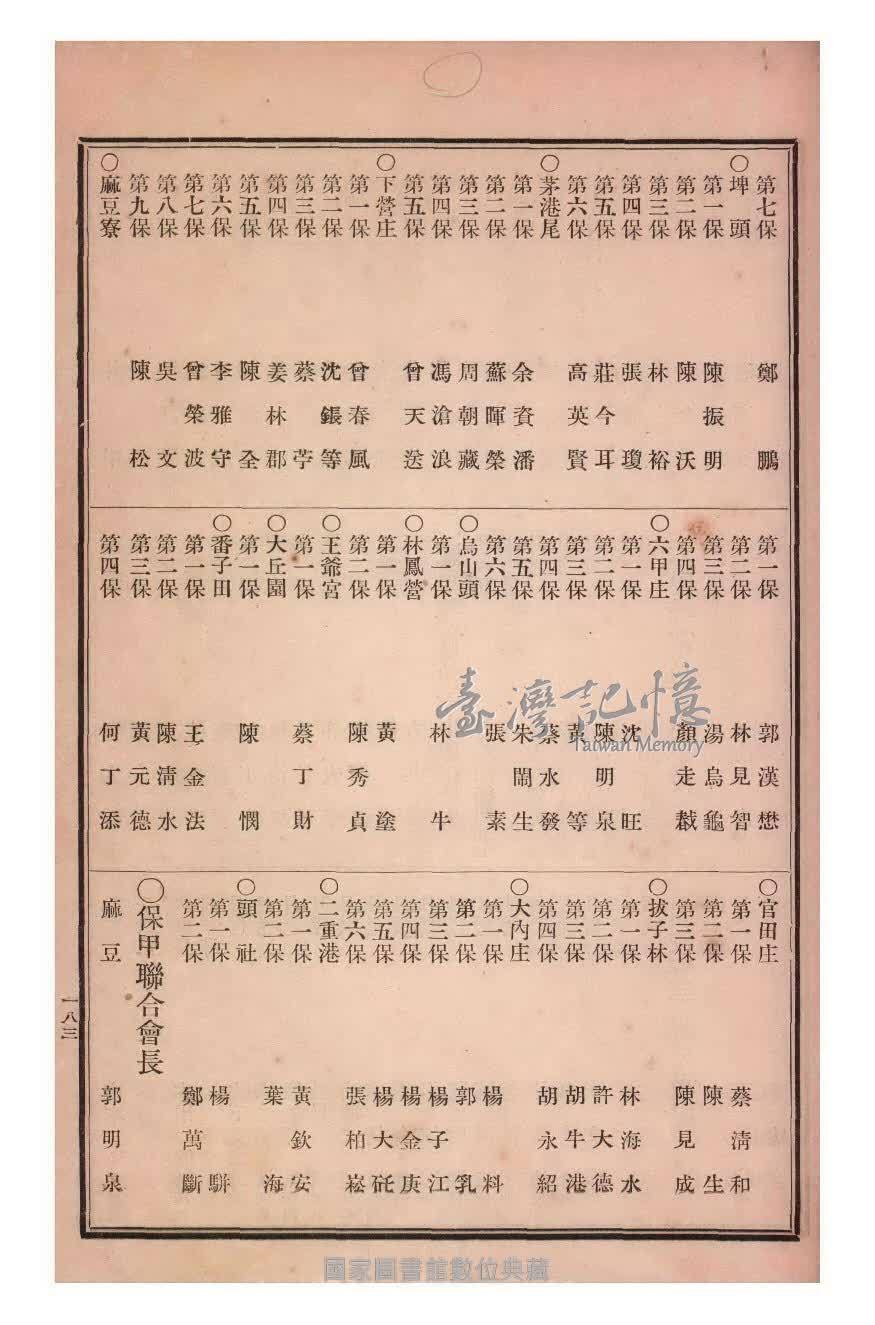 第七保 鄭鵬
○埤頭
第一保 陳振明
第二保 陳沃
第三保 林裕
第四保 張瓊
第五保 莊今耳
第六保 高英賢
○茅港尾
第一保 余資潘
第二保 蘇暉榮
第三保 周朝藏
第四保 馮滄浪
第五保 曾天送
○下營庄
第一保 曾春風
第二保 沈鋹等
第三保 蔡苧
第四保 姜林郡
第五保 陳全
第六保 李雅守
第七保 曾榮波
第八保 吳文
第九保 陳松
○麻豆寮
第一保 郭漢懋
第二保 林見智
第三保 湯烏龜
第四保 顏走
○六甲庄
第一保 沈旺
第二保 陳明泉
第三保 黃等
第四保 蔡水發
第五保 朱鬧生
第六保 張素
○烏山頭
第一保 林牛
○林鳳營
第一保 黃塗
第二保 陳秀貞
○王爺宮
第一保 蔡丁財
○大丘園
第一保 陳憫
○番子田
第一保 王金法
第二保 陳清水
第三保 黃元德
第四保 何丁添
○官田庄
第一保 蔡清和
第二保 陳生
第三保 陳見成
○拔子林
第一保 林海水
第二保 許大德
第三保 胡牛港
第四保 胡永紹
○大內庄
第一保 楊料
第二保 郭乳
第三保 楊子江
第四保 楊金庚
第五保 楊大砡
第六保 張柏崧
○二重港
第一保 黃欽安
第二保 葉海
○頭社
第一保 楊駢
第二保 鄭萬斷
○保甲聯合會長
麻豆 郭明泉
一八三
臺灣記憶
Taiwan Memory
國家圖書館數位典藏